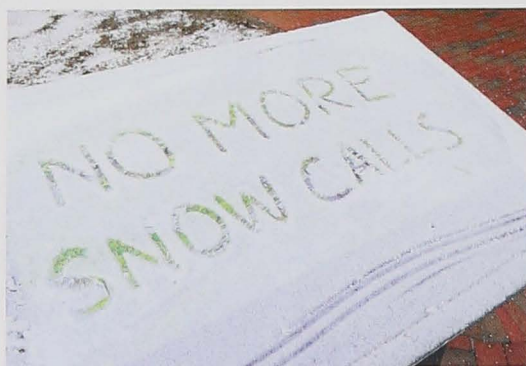 NO MORE
SNOW CALLS